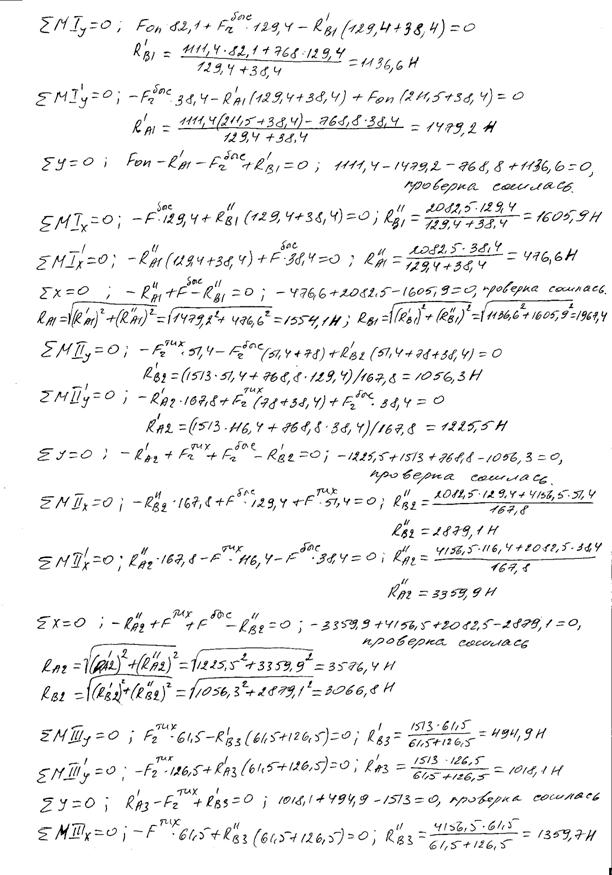 ΣM I_y=0; Fоп 82,1+F_r^быс·129,4−R'_B1(129,4+38,4)=0
R'_B1 = (1111,4·82,1+768·129,4)/(129,4+38,4) = 1136,6 Н
ΣM I'_y=0; −F_r^быс·38,4−R'_A1(129,4+38,4)+Fоп(211,5+38,4)=0
R'_A1 = (1111,4(211,5+38,4)−768,8·38,4)/(129,4+38,4) = 1479,2 Н
ΣY=0; Fоп−R'_A1−F_r^быс+R'_B1=0; 1111,4−1479,2−768,8+1136,6=0,
проверка сошлась.
ΣM I_x=0; −F^быс·129,4+R''_B1(129,4+38,4)=0; R''_B1=(2082,5·129,4)/(129,4+38,4)=1605,9Н
ΣM I'_x=0; −R''_A1(129,4+38,4)+F^быс·38,4=0; R''_A1=(2082,5·38,4)/(129,4+38,4)=476,6Н
ΣX=0; −R''_A1+F^быс−R''_B1=0; −476,6+2082,5−1605,9=0, проверка сошлась.
R_A1=√((R'_A1)²+(R''_A1)²)=√(1479,2²+476,6²)=1554,1Н; R_B1=√((R'_B1)²+(R''_B1)²)=√(1136,6²+1605,9²)=1967,4
ΣM II_y=0; −F_r^тих·51,4−F_r^быс(51,4+78)+R'_B2(51,4+78+38,4)=0
R'_B2=(1513·51,4+768,8·129,4)/167,8=1056,3Н
ΣM II'_y=0; −R'_A2·167,8+F_r^тих(78+38,4)+F_r^быс·38,4=0
R'_A2=(1513·116,4+768,8·38,4)/167,8=1225,5Н
ΣY=0; −R'_A2+F_r^тих+F_r^быс−R'_B2=0; −1225,5+1513+768,8−1056,3=0,
проверка сошлась.
ΣM II_x=0; −R''_B2·167,8+F^быс·129,4+F^тих·51,4=0; R''_B2=(2082,5·129,4+4156,5·51,4)/167,8
R''_B2=2879,1Н
ΣM II'_x=0; R''_A2·167,8−F^тих·116,4−F^быс·38,4=0; R''_A2=(4156,5·116,4+2082,5·38,4)/167,8
R''_A2=3359,9Н
ΣX=0; −R''_A2+F^тих+F^быс−R''_B2=0; −3359,9+4156,5+2082,5−2879,1=0,
проверка сошлась
R_A2=√((R'_A2)²+(R''_A2)²)=√(1225,5²+3359,9²)=3576,4Н
R_B2=√((R'_B2)²+(R''_B2)²)=√(1056,3²+2879,1²)=3066,8Н
ΣM III_y=0; F_r^тих·61,5−R'_B3(61,5+126,5)=0; R'_B3=(1513·61,5)/(61,5+126,5)=494,9Н
ΣM III'_y=0; −F_r^тих·126,5+R'_A3(61,5+126,5)=0; R'_A3=(1513·126,5)/(61,5+126,5)=1018,1Н
ΣY=0; R'_A3−F_r^тих+R'_B3=0; 1018,1+494,9−1513=0, проверка сошлась
ΣM III_x=0; −F^тих·61,5+R''_B3(61,5+126,5)=0; R''_B3=(4156,5·61,5)/(61,5+126,5)=1359,7Н